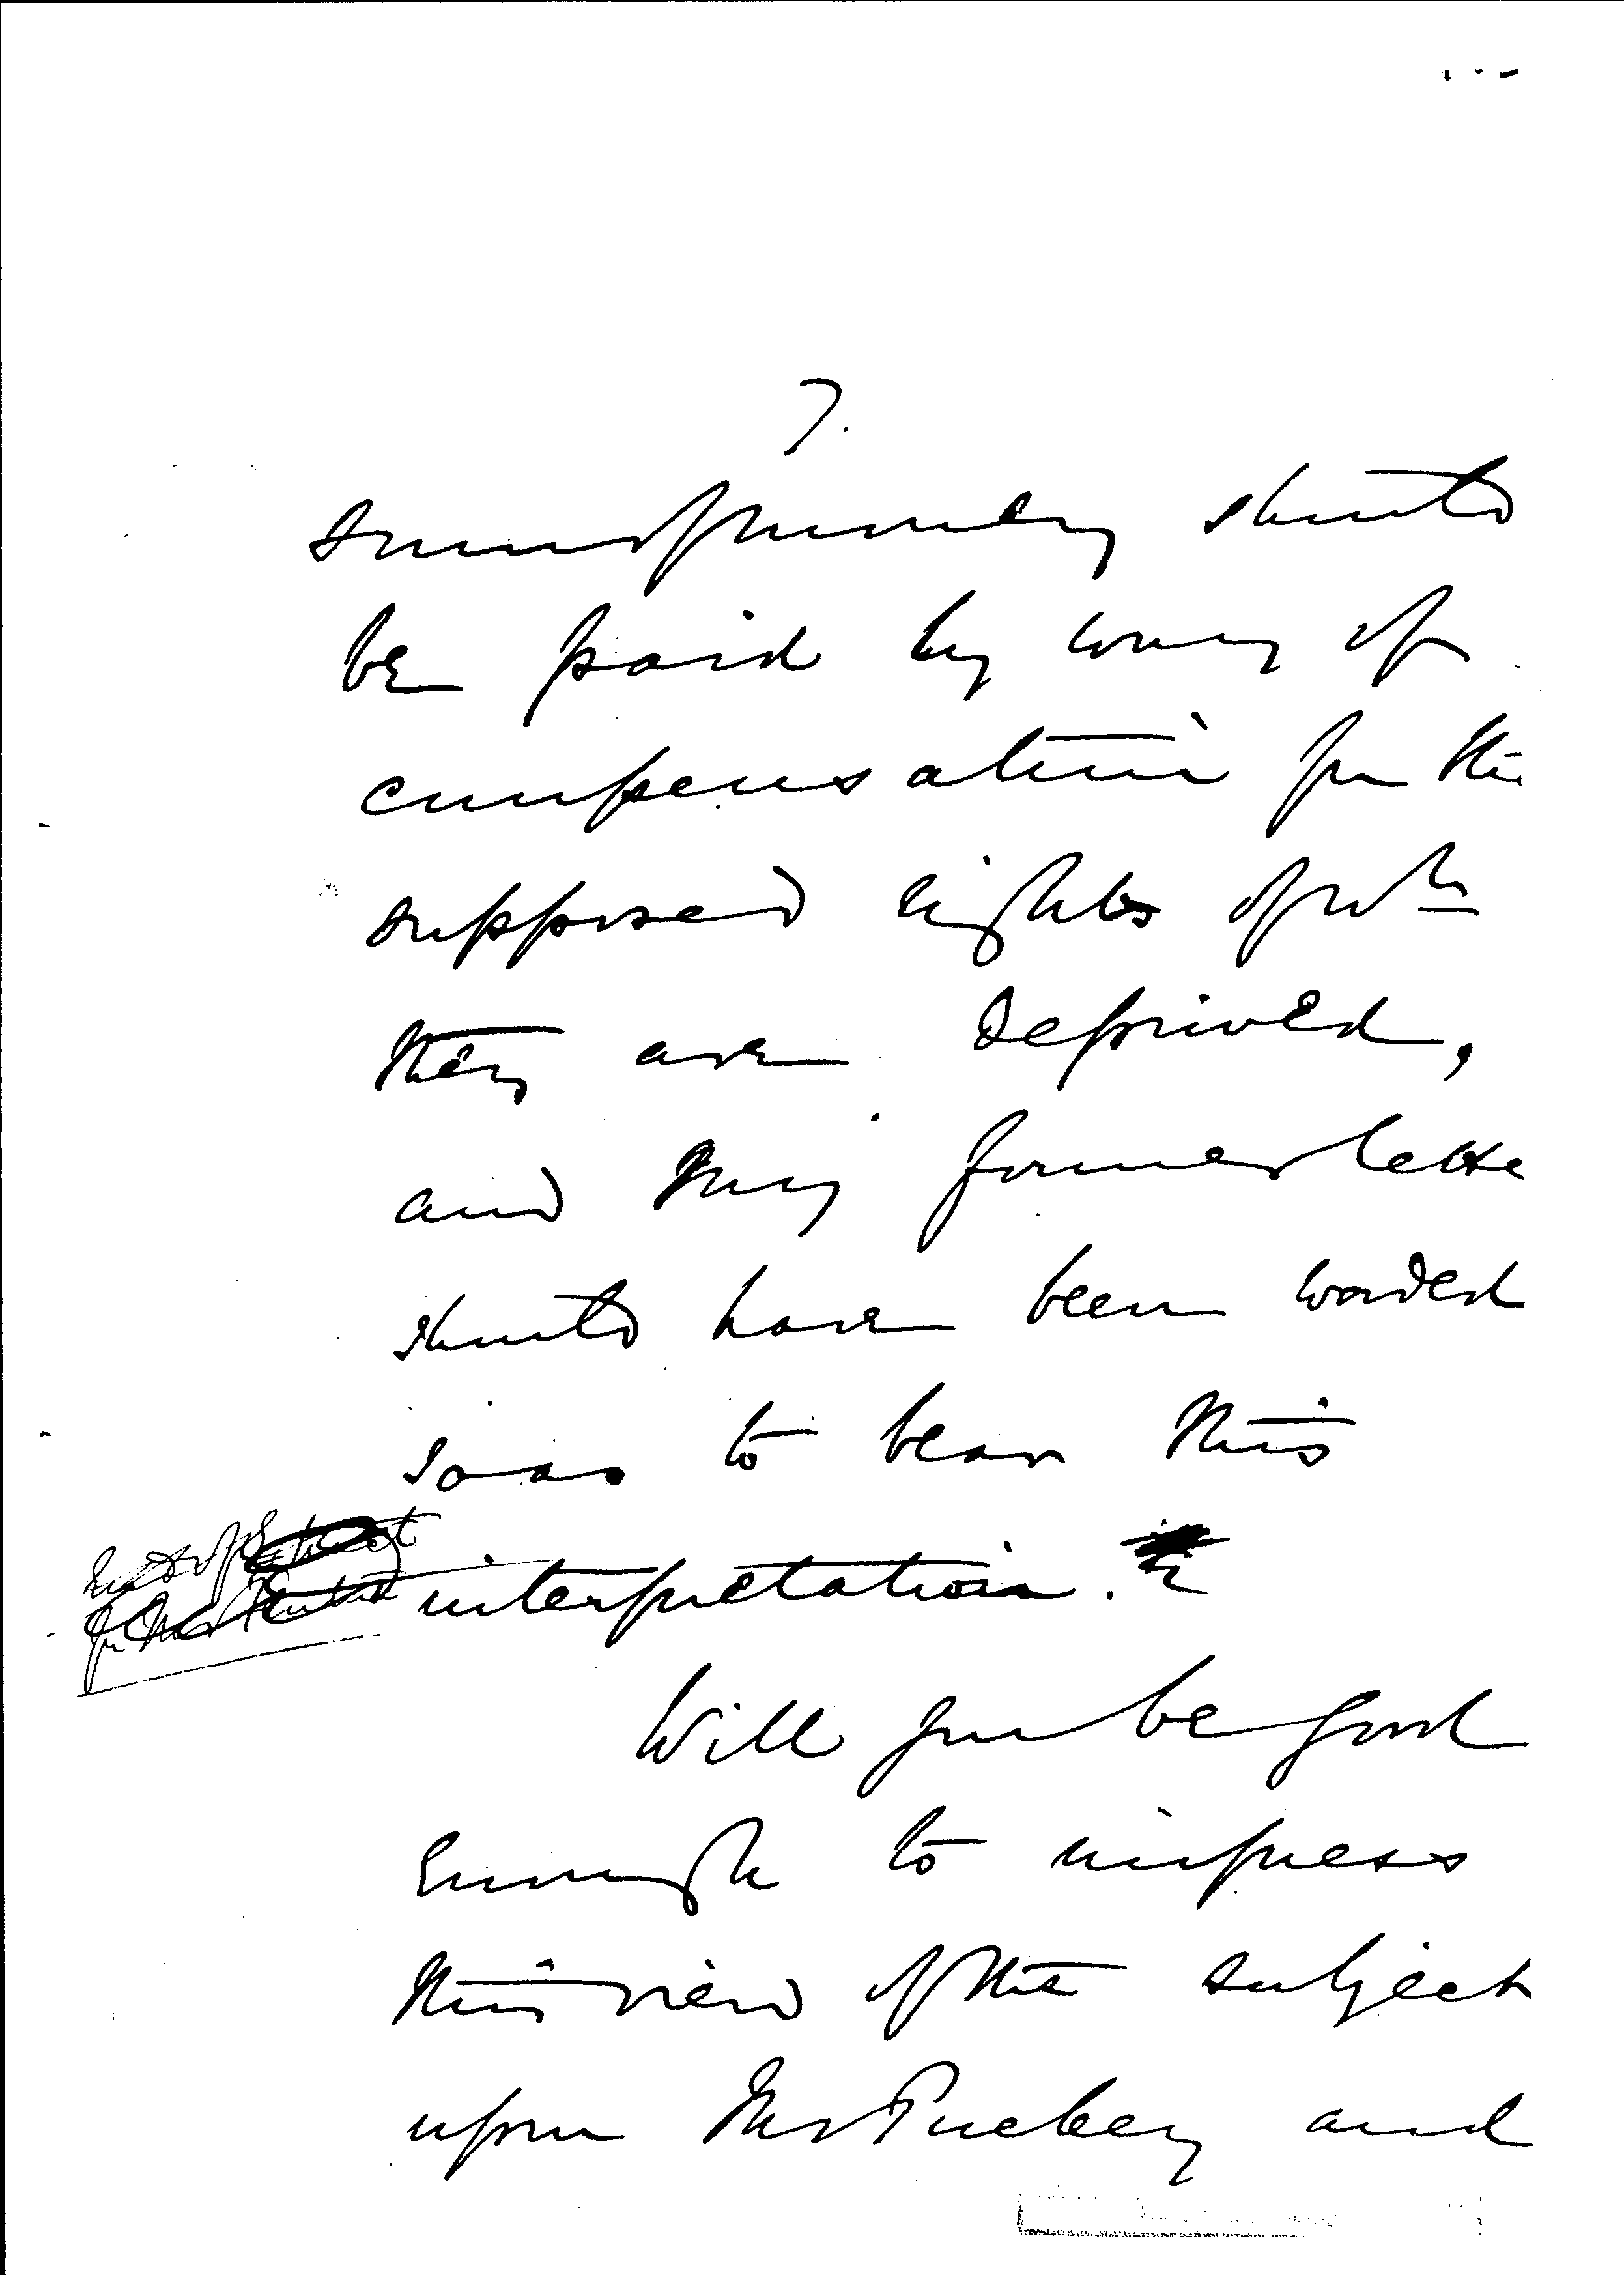 7.
sum of money should
be paid by way of
compensation for the
supposed rights of wh
they are deprived,
and my former letter
should have been worded
so as to bear this
interpretation.
Will you be good
enough to impress
this view of the subject
upon Mr Puckey and